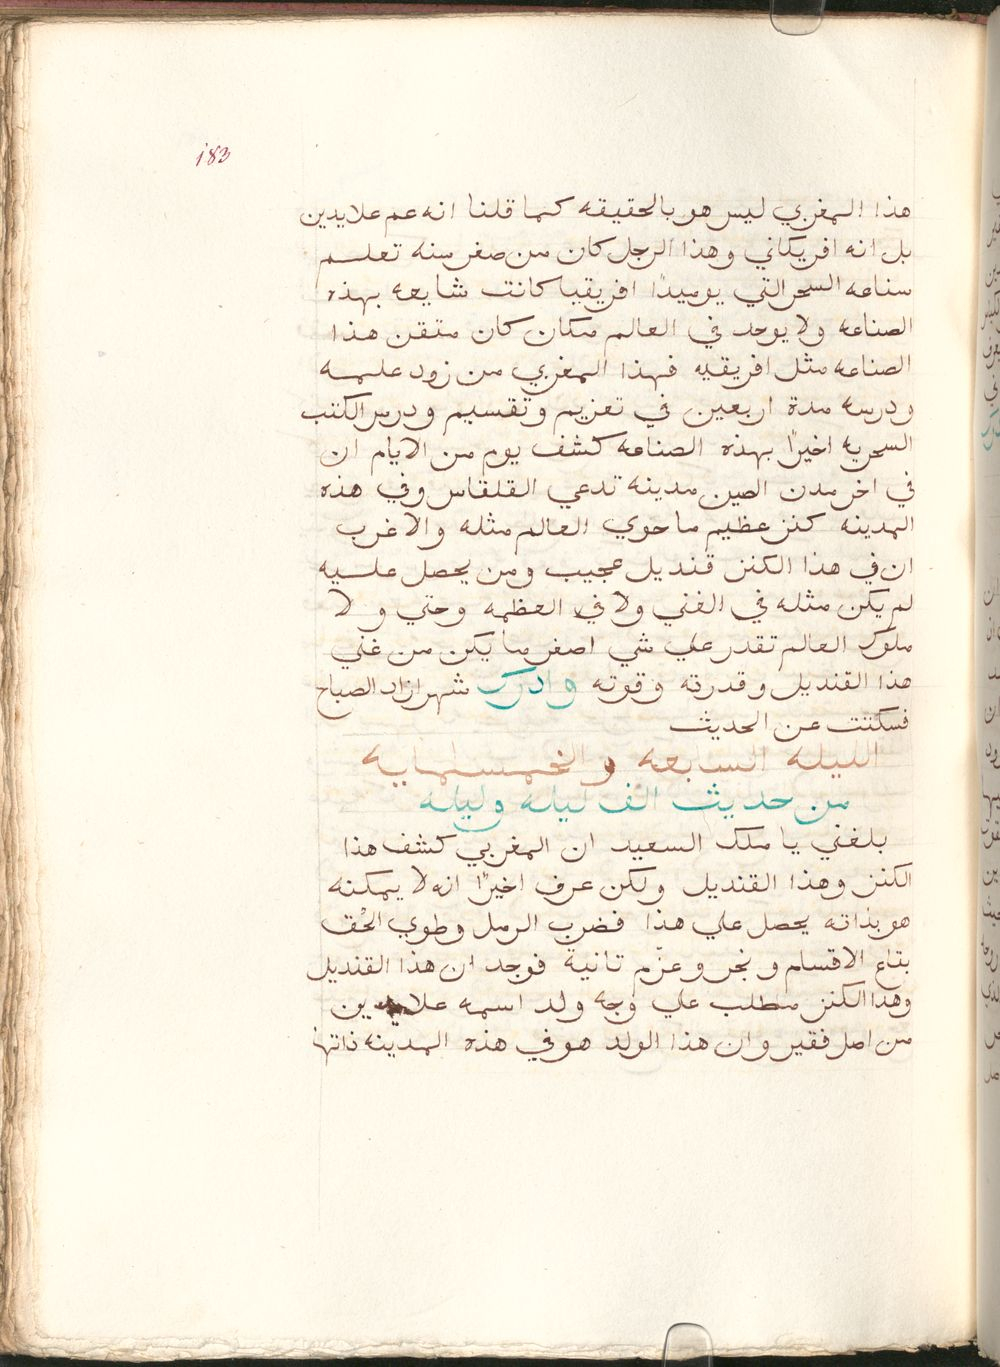 183
هذا المغربي ليس هو بالحقيقه كما قلنا انه عم علايدين
بل انه افريكاني وهذا الرجل كان من صغر سنه تعلم
سناعه السحر التي يوميدًا افريقيا كانت شايعه بهذه
الصناعه ولا يوجد في العالم مكان كان متقن هذا
الصناعه مثل افريقيه فهذا المغربي من زود علمه
ودرسه مدة اربعين في تعزيم وتقسيم ودرس الكتب
السحريه اخيرًا بهذه الصناعه كشف يوم من الايام ان
في اخر مدن الصين مدينه تدعي القلقاس وفي هذه
المدينه كنز عظيم ما حوي العالم مثله والاغرب
ان في هذا الكنز قنديل عجيب ومن يحصل عليه
لم يكن مثله في الغني ولا في العظمه وحتي ولا
ملوك العالم تقدر علي شي اصغر ما يكن من غني
هذا القنديل وقدرته وقوته وادرك شهرازاد الصباح
فسكتت عن الحديث
الليله السابعه والخمسمايه
من حديث الف ليله وليله
بلغني يا ملك السعيد ان المغربي كشف هذا
الكنز وهذا القنديل ولكن عرف اخيرًا انه لا يمكنه
هو بذاته يحصل علي هذا فضرب الرمل وطوي الحُق
بتاع الاقسام ونخر وعزّم تانية فوجد ان هذا القنديل
وهذا الكنز مطلب علي وجه ولد اسمه علايدين
من اصل فقير وان هذا الولد هو في هذه المدينه ذاتها